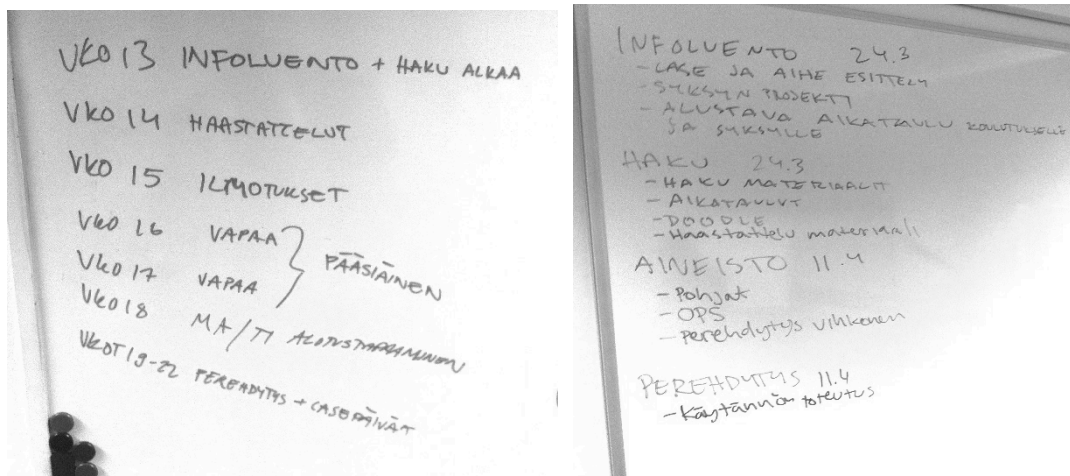 VKO 13 INFOLUENTO + HAKU ALKAA
VKO 14 HAASTATTELUT
VKO 15 ILMOTUKSET
VKO 16 VAPAA
VKO 17 VAPAA
PÄÄSIÄINEN
VKO 18 MA/TI ALOTUSTAPAAMINEN
VKOT 19-22 PEREHDYTYS + CASEPÄIVÄT
INFOLUENTO 24.3
- CASE JA AIHE ESITTELY
- SYKSYN PROJEKTI
- ALUSTAVA AIKATAULU KOULUTUKSELLE
JA SYKSYLLE
HAKU 24.3
- HAKU MATERIAALIT
- AIKATAULUT
- DOODLE
- Haastattelu materiaali
AINEISTO 11.4
- Pohjat
- OPS
- Perehdytys vihkonen
PEREHDYTYS 11.4
- Käytännön toteutus